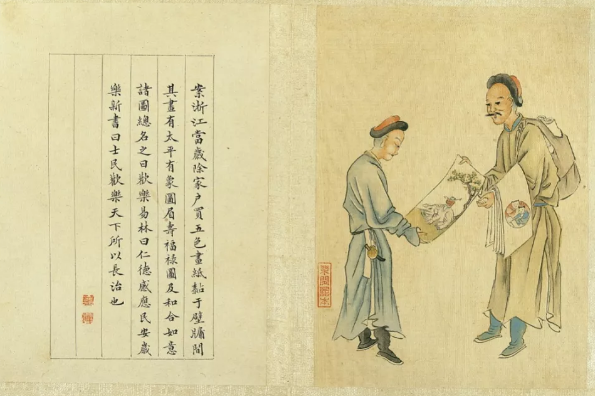 案浙江當歲除家户買五色畫紙黏于壁牖間
其畫有太平有象圖眉壽福祿圖及和合如意
諸圖總名之曰歡樂易林曰仁德感應民安歲
樂新書曰士民歡樂天下所以長治也